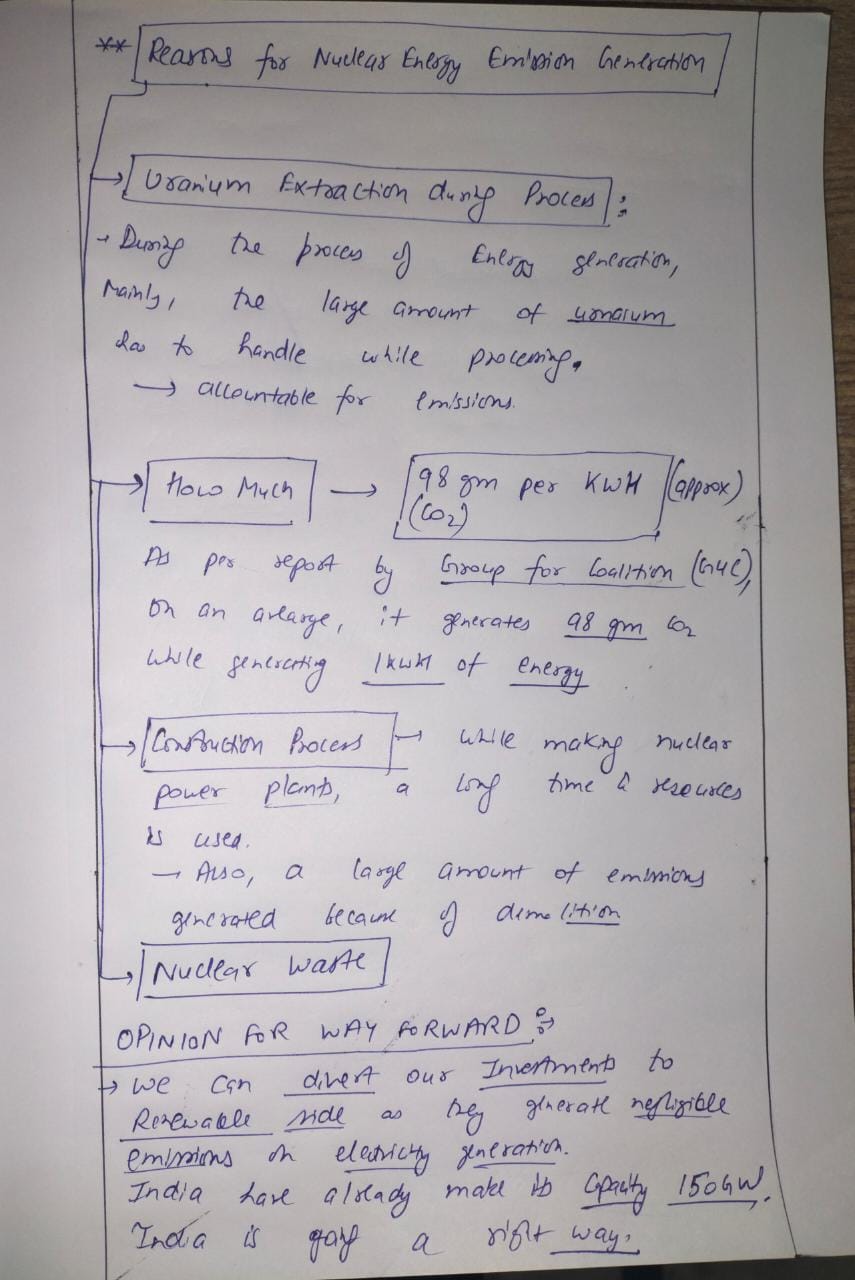 ** Reasons for Nuclear Energy Emission Generation
→ Uranium Extraction during Process :
→ During the process of Energy generation,
Mainly, the large amount of urnaium
has to handle while processing.
→ accountable for emissions.
→ How Much → 98 gm per KWH (approx)
(CO2)
As per report by Group for Coalition
On an avearge, it generates 98 gm CO2
while generating 1KWH of energy
→ Construction Process → while making nuclear
power plants, a long time & resources
is used.
→ Also, a large amount of emissions
generated because of demolition
→ Nuclear Waste
OPINION FOR WAY FORWARD :→
→ We can divert our Investments to
Renewable side as they generate negligible
emissions on electricity generation.
India have already make its Capacity 150GW.
India is going a right way.